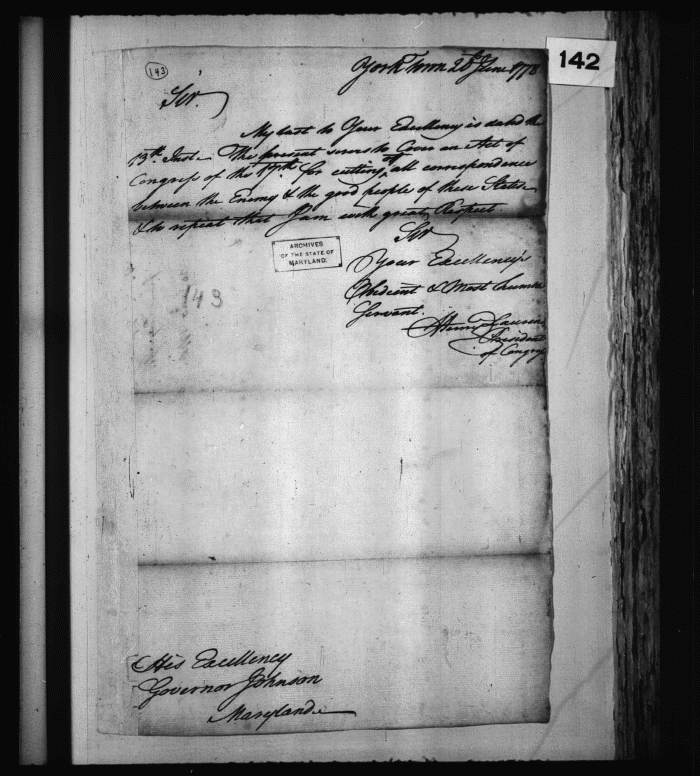 142
143
York Town 20th June 1778
Sir.
My last to Your Excellency is dated the
13th. Inst. The present serves to Cover an Act of
Congress of the 17th for cutting off all correspondence
between the Enemy & the good people of these States
& to repeat that I am with great Respect
Sir
Your Excellency's
Obedient & Most humb
Servant.
Henry Laurens
President
of Congress
ARCHIVES
OF THE STATE OF
MARYLAND.
143
His Excellency
Governor Johnson
Maryland.